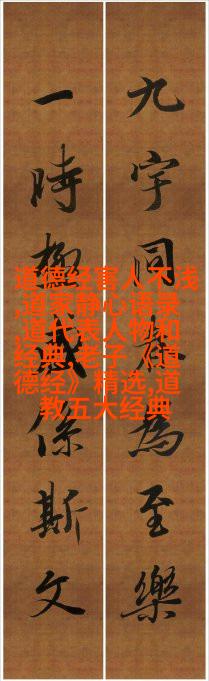 九宇同為至樂
一時極係斯文
道德经害人不浅
,道家静心语录
,道代表人物和
经典,老子《道
德经》精选,道
教五大经典